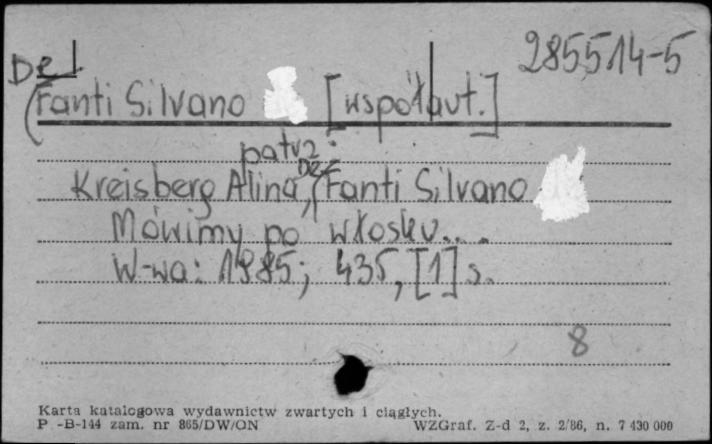 285514-5
De
Fanti Silvano [współaut.]
patrz:
Kreisberg Alina, De Fanti Silvano
Mówimy po włosku...
W-wa: 1985; 435, [1] s.
8
Karta katalogowa wydawnictw zwartych i ciągłych.
P -B-144 zam. nr 865/DW/ON WZGraf. Z-d 2, z. 2/86, n. 7 430 000